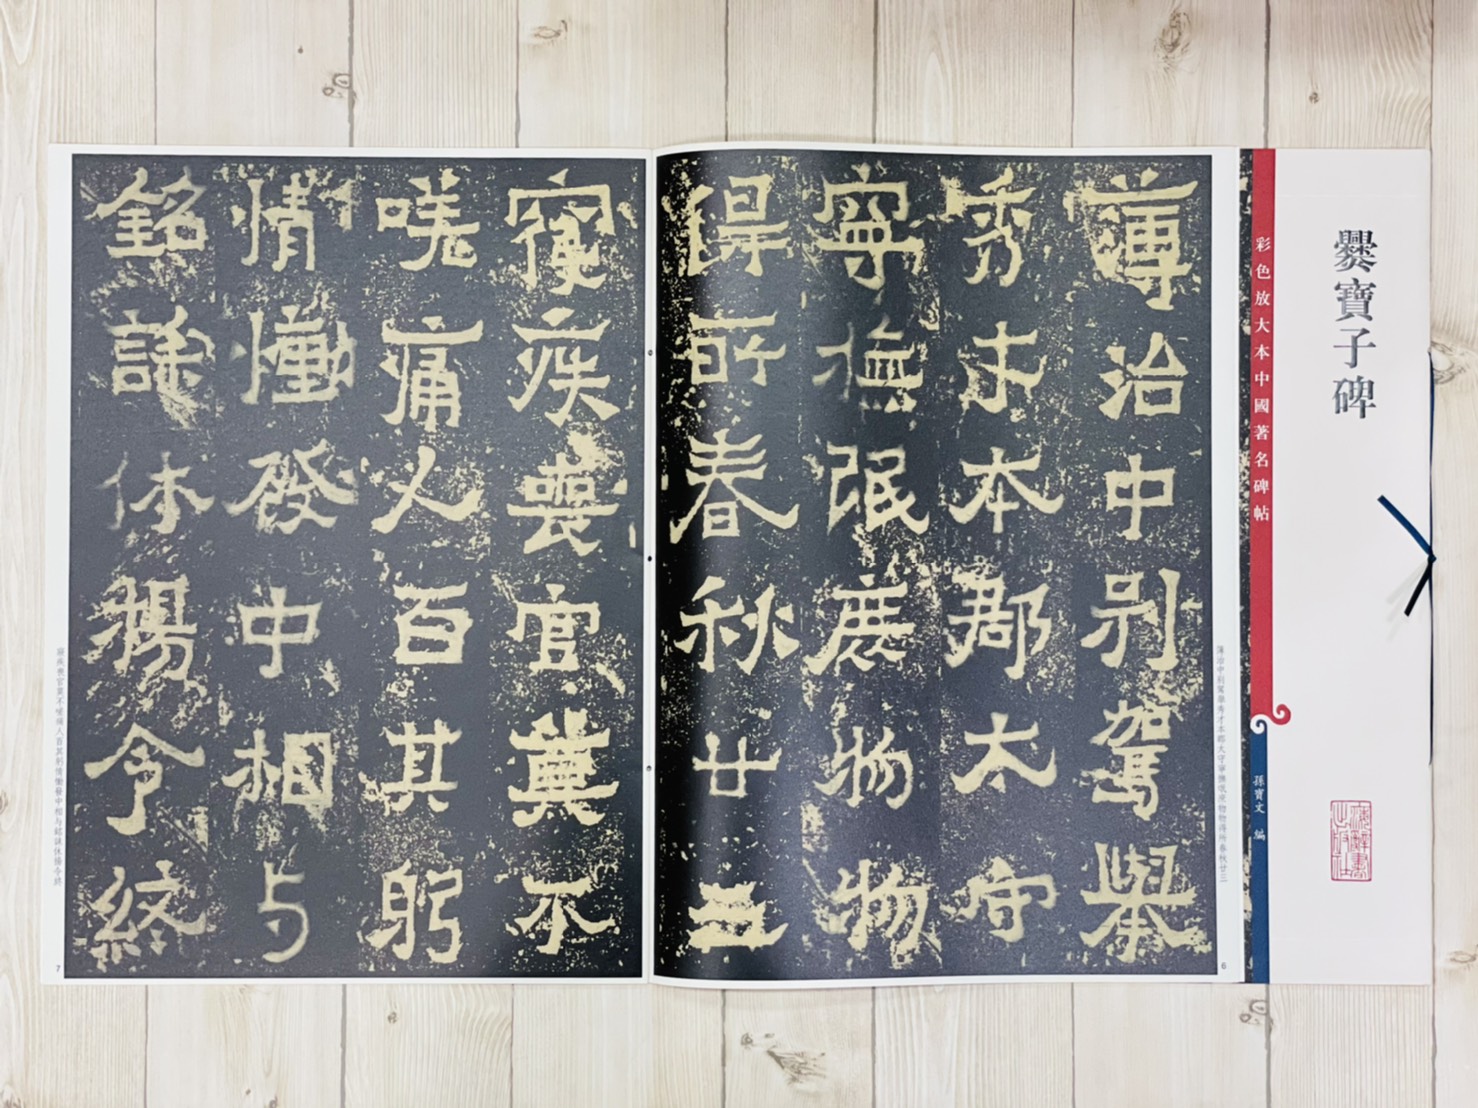 爨寶子碑
彩色放大本中國著名碑帖
孫寶文 編
簿治中別駕舉秀才本郡太守寧撫氓庶物物得所春秋廿三
6
簿治中别駕舉
秀才本郡太守
寧撫氓庶物物
得所春秋廿三
寢疾喪官莫不
嗟痛人百其躬
情慟發中相与
銘誄休揚令終
寢疾喪官莫不嗟痛人百其躬情慟發中相与銘誄休揚令終
7